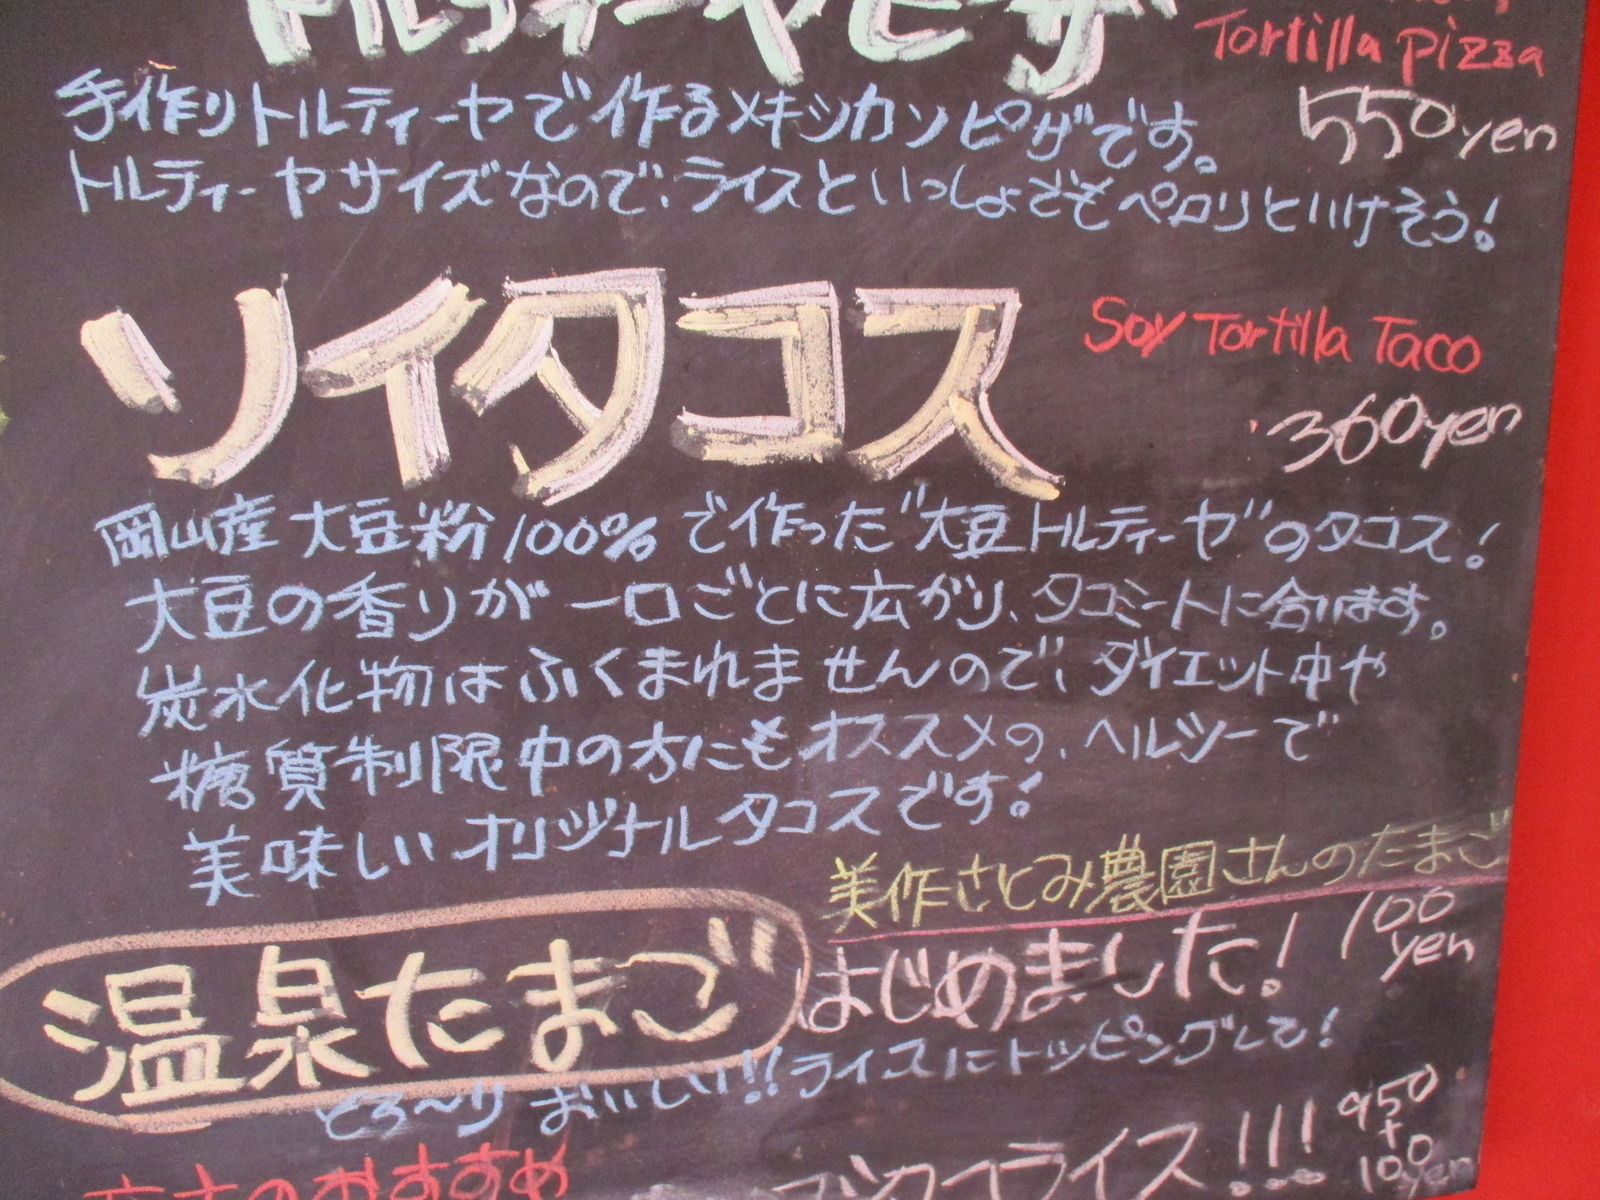 トルティーヤピザ
Tortilla pizza
手作りトルティーヤで作るメキシカンピザです。
550yen
トルティーヤサイズなので、ライスといっしょでもペロリといけそう!
ソイタコス
Soy Tortilla Taco
360yen
岡山産 大豆粉100%で作った"大豆トルティーヤ"のタコス!
大豆の香りが一口ごとに広がり、タコミートに合います。
炭水化物はふくまれませんので、ダイエット中や
糖質制限中の方にもオススメの、ヘルシーで
美味しいオリジナルタコスです!
美作さとみ農園さんのたまご
温泉たまご はじめました!
100
yen
とろ〜り おいしい!! ライスにトッピングして!
のおすすめ
ライス!!!
950
+
100yen